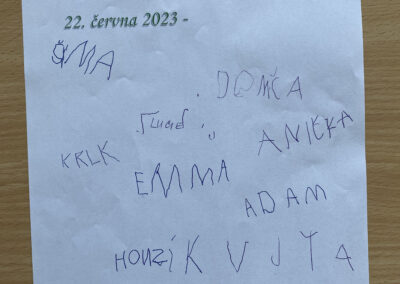 22. června 2023 -
ŠMA
DOMČA
ANIČKA
KRLK
EMMA
ADAM
HONZÍK VJTA